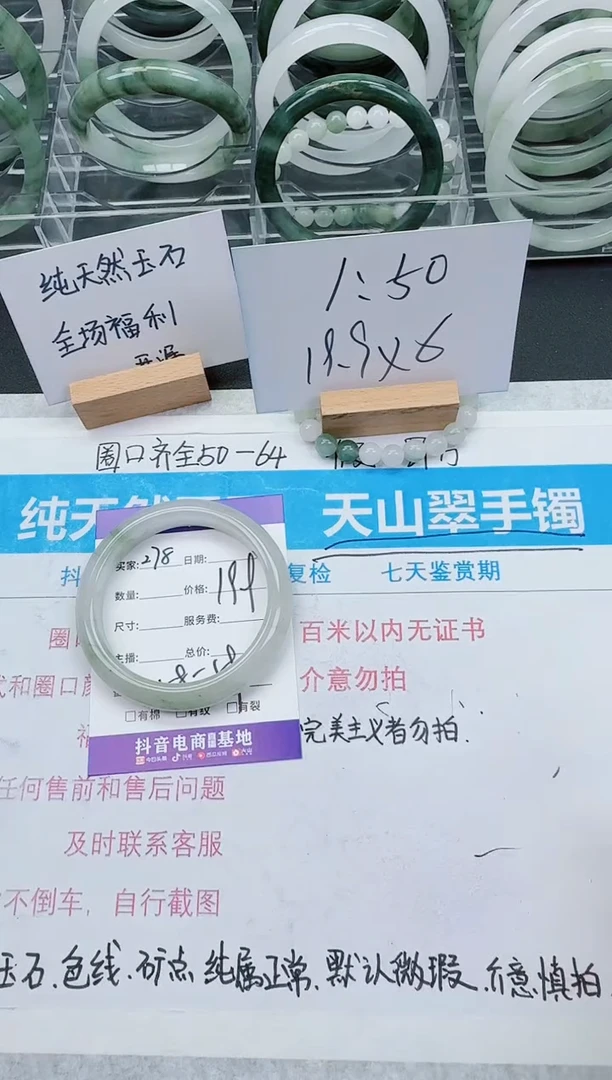 纯天然玉石
全场福利
1:50
19.9×6
圈口齐全50-64
天山翠手镯
复检 七天鉴赏期
买家:278 日期:
数量: 价格:199
尺寸: 服务费:
主播: 总价:
百米以内无证书
介意勿拍
有棉 有纹 有裂
抖音电商 基地
今日头条 抖音 西瓜视频 火山
完美主义者勿拍.
任何售前和售后问题
及时联系客服
不倒车，自行截图
玉石、色线、矿点、纯属正常、默认微瑕、介意慎拍